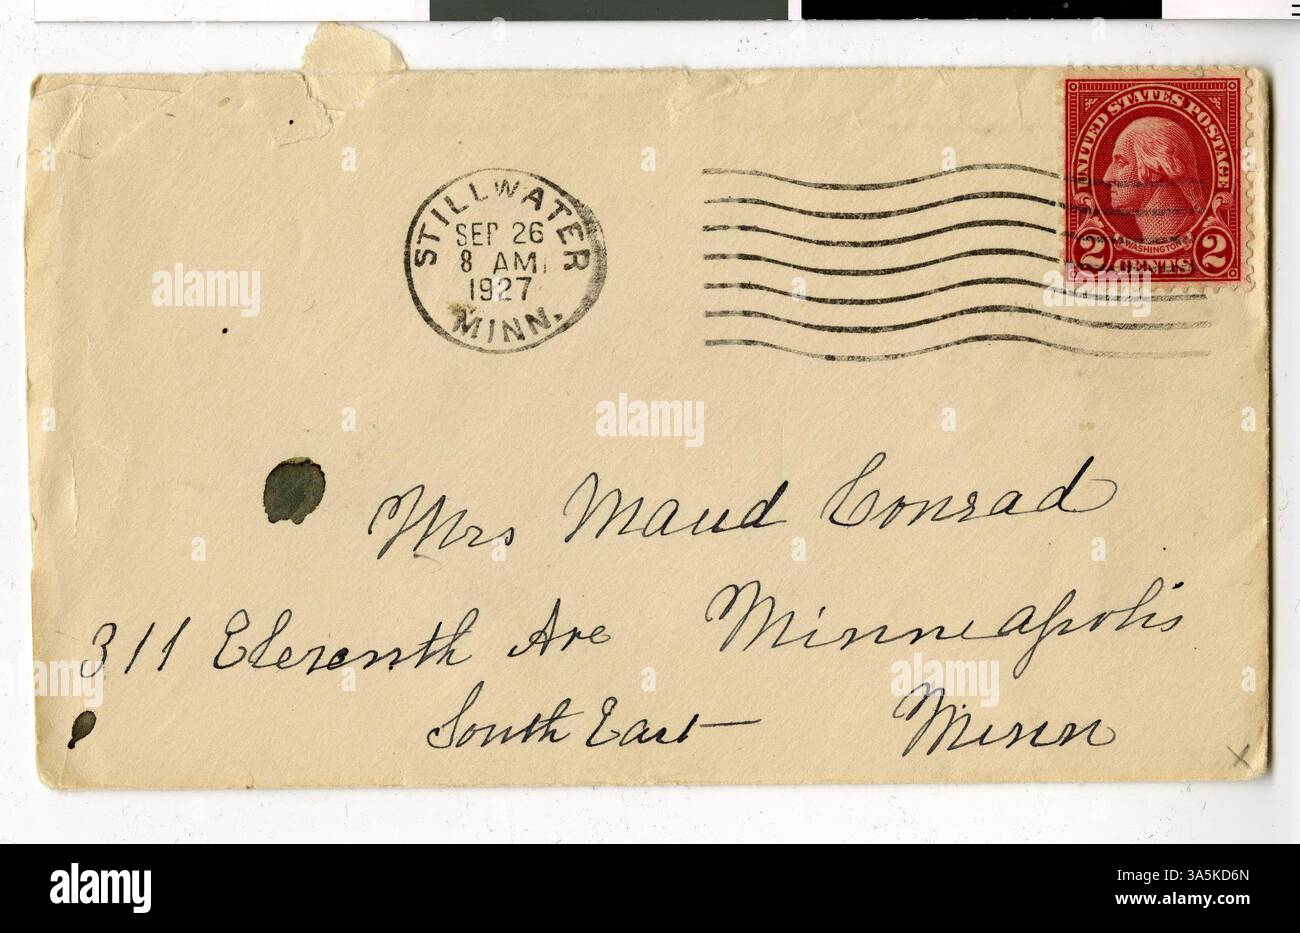 UNITED STATES POSTAGE
WASHINGTON
2 CENTS 2
STILLWATER
SEP 26
8 AM
1927
MINN.
Mrs Maud Conrad
311 Eleventh Ave Minneapolis
South East Minn
x
alamy
Image ID: 3A5KD6N
www.alamy.com